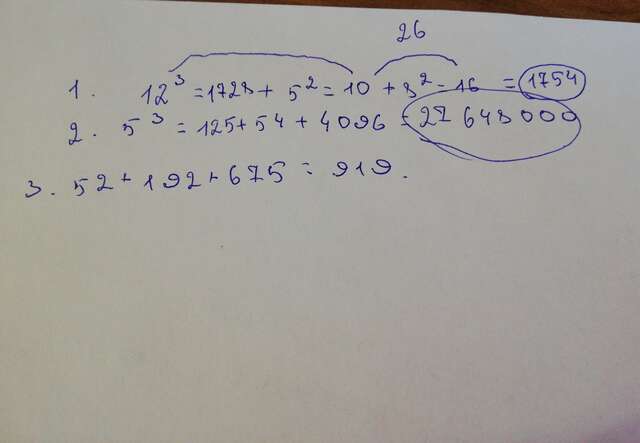 26
1. 12³ = 1728 + 5² = 10 + 8² = 16 = 1754
2. 5³ = 125 + 54 + 4096 = 27 648 000
3. 52 + 192 + 675 = 919.